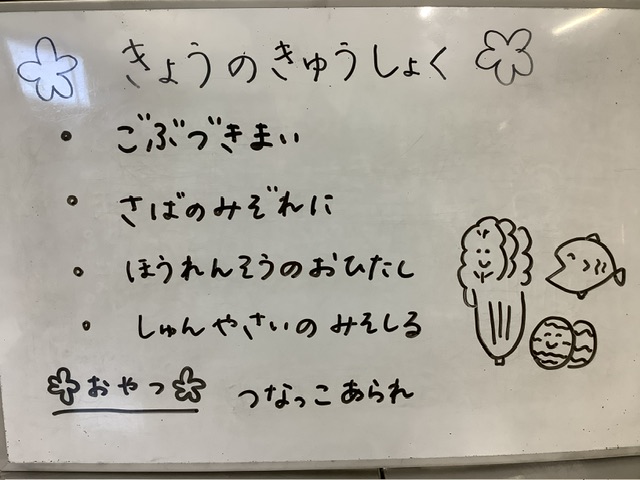 きょうのきゅうしょく
・ごぶづきまい
・さばのみぞれに
・ほうれんそうのおひたし
・しゅんやさいのみそしる
おやつ つなっこあられ